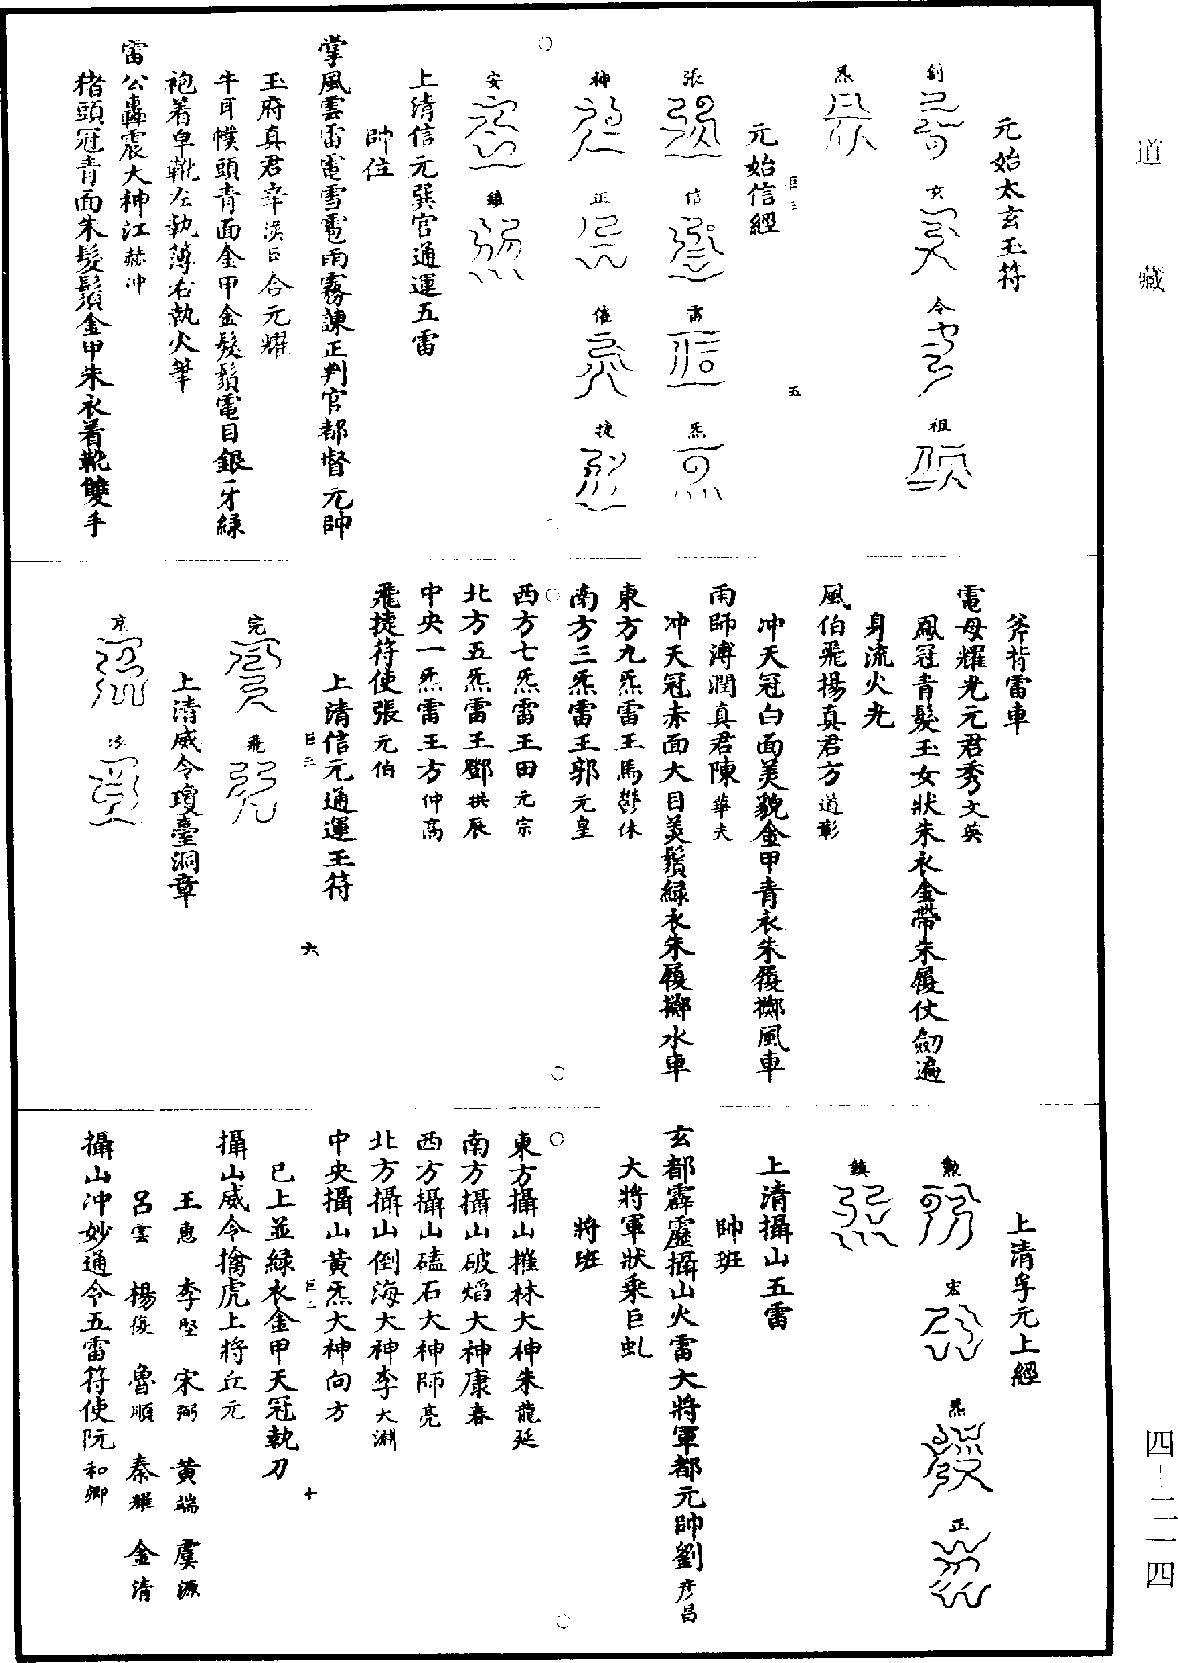 道藏
元始太玄玉符
創 玄 令 祖
炁
元始信經
張 信 雷 炁
神 正 催 捷
安 鎮
上清信元巽官通運五雷
帥位
掌風雲雷電雪雹雨霧諫正判官都督元帥
玉府真君辛漢臣合元耀
牛耳幞頭青面金甲金髮鬚電目銀牙綠
袍着皂靴左執薄右執火筆
雷公轟震大神江赫冲
猪頭冠青面朱髮鬚金甲朱衣着靴雙手
斧背雷車
電母耀光元君秀文英
鳳冠青髮玉女狀朱衣金帶朱履仗劒遍
身流火光
風伯飛揚真君方道彰
冲天冠白面美貌金甲青衣朱履擲風車
雨師溥潤真君陳華夫
冲天冠赤面大目美鬚綠衣朱履擲水車
東方九炁雷王馬鬱休
南方三炁雷王郭元皇
西方七炁雷王田元宗
北方五炁雷王鄧拱辰
中央一炁雷王方仲高
飛捷符使張元伯
上清信元通運玉符
完 飛
上清威令瓊臺洞章
京
上清孚元上經
勑 宏 炁 正
鎮
上清攝山五雷
帥班
玄都霹靂攝山火雷大將軍都元帥劉彥昌
大將軍狀乘巨虬
將班
東方攝山摧林大神朱龍延
南方攝山破焰大神康春
西方攝山磕石大神師亮
北方攝山倒海大神李大淵
中央攝山黃炁大神向方
已上並綠衣金甲天冠執刀
攝山威令擒虎上將丘元
王惠 李堅 宋弼 黃端 虞源
呂雲 楊俊 魯順 秦耀 金清
攝山沖妙通令五雷符使阮和卿
五
六
十
四-二一四